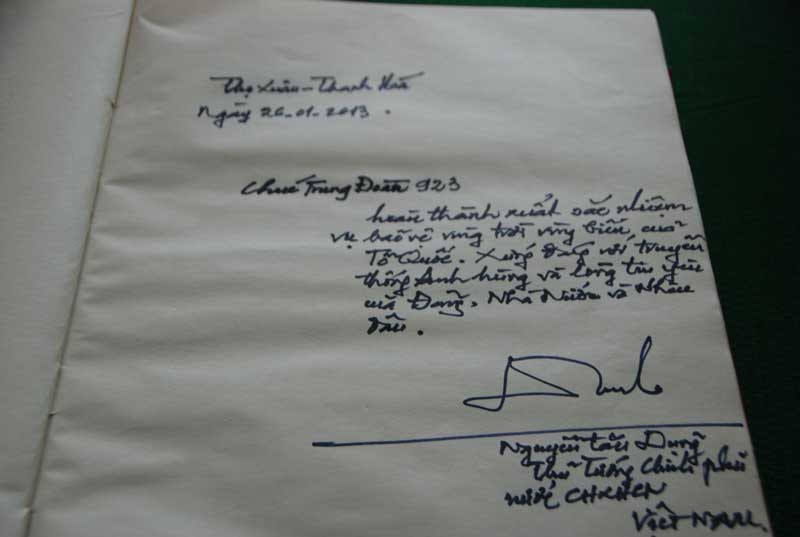 Thọ Xuân - Thanh Hoá
Ngày 26-01-2013.
Chúc Trung Đoàn 923
hoàn thành xuất sắc nhiệm
vụ bảo vệ vùng trời vùng biển, của
Tổ Quốc. Xứng đáng với truyền
thống Anh hùng và lòng tin yêu
của Đảng, Nhà Nước và Nhân
dân.
Nguyễn Tấn Dũng
Thủ Tướng Chính phủ
nước CHXHCN
Việt NAM